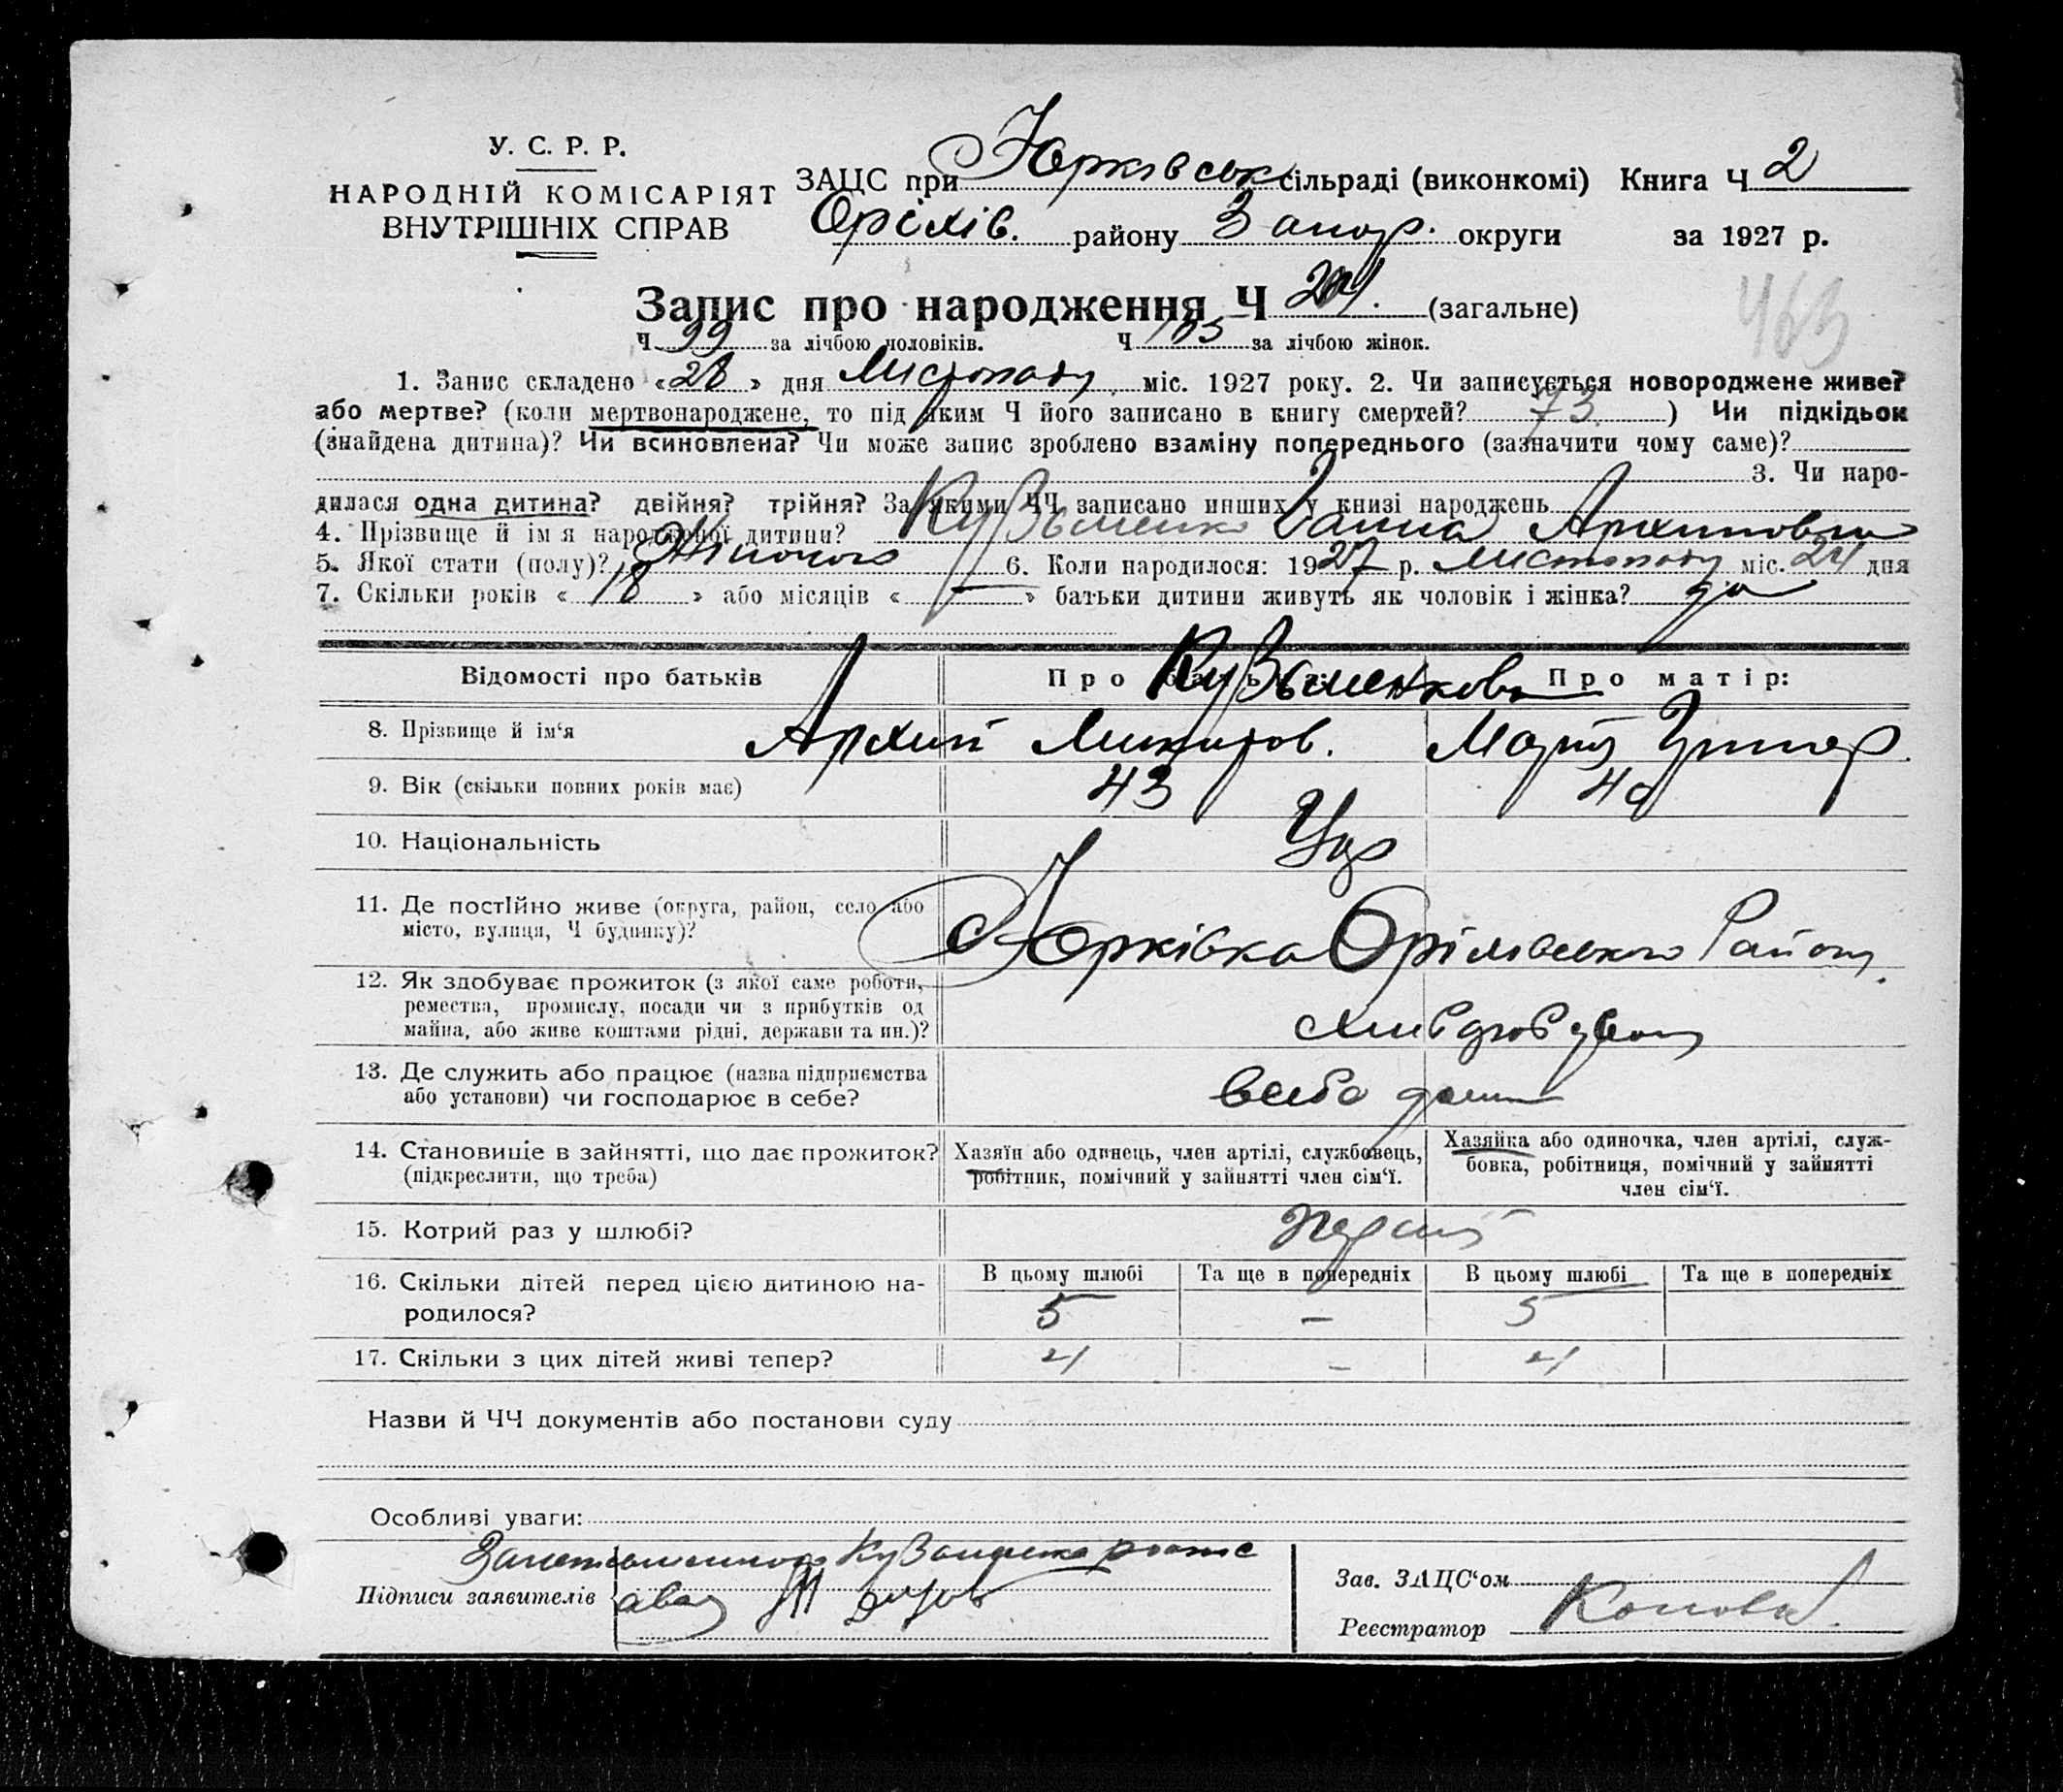 У. С. Р. Р.
НАРОДНІЙ КОМІСАРІЯТ
ВНУТРІШНІХ СПРАВ
ЗАЦС при Юрківськ сільраді (виконкомі) Книга Ч 2
Оріхів. району Запор. округи за 1927 р.
463
Запис про народження Ч (загальне)
Ч 99 за лічбою чоловіків. Ч 105 за лічбою жінок.
1. Запис складено «28» дня Листопаду міс. 1927 року. 2. Чи записується новороджене живе?
або мертве? (коли мертвонароджене, то під яким Ч його записано в книгу смертей? 73 ) Чи підкідьок
(знайдена дитина)? Чи всиновлена? Чи може запис зроблено взаміну попереднього (зазначити чому саме)?
3. Чи наро-
дилася одна дитина? двійня? трійня? За якими ЧЧ записано инших у книзі народжень
4. Прізвище й ім'я народженої дитини? Кузьменко Ганна Архиповна
5. Якої стати (полу)? Жіночого 6. Коли народилося: 1927 р. Листопаду міс. 24 дня
7. Скільки років «18» або місяців «—» батьки дитини живуть як чоловік і жінка? да
Відомості про батьків Про батька: Про матір:
Кузьменкови
8. Прізвище й ім'я Архип Микитов. Марія Григор.
9. Вік (скільки повних років має) 43 40
10. Національність Укр
11. Де постійно живе (округа, район, село або
місто, вулиця, Ч будинку)? с Юрківка Оріхівського Району.
12. Як здобуває прожиток (з якої саме роботи,
ремества, промислу, посади чи з прибутків од
майна, або живе коштами рідні, держави та ин.)? хліборобством
13. Де служить або працює (назва підприємства
або установи) чи господарює в себе? в себе дома
14. Становище в зайнятті, що дає прожиток?
(підкреслити, що треба)
Хазяїн або одинець, член артілі, службовець,
робітник, помічний у зайнятті член сім'ї.
Хазяйка або одиночка, член артілі, служ-
бовка, робітниця, помічний у зайнятті
член сім'ї.
15. Котрий раз у шлюбі? Перший
16. Скільки дітей перед цією дитиною на-
родилося?
В цьому шлюбі Та ще в попередніх В цьому шлюбі Та ще в попередніх
5 — 5
17. Скільки з цих дітей живі тепер? 4 — 4
Назви й ЧЧ документів або постанови суду
Особливі уваги:
Підписи заявителів
Зав. ЗАЦС'ом
Реєстратор